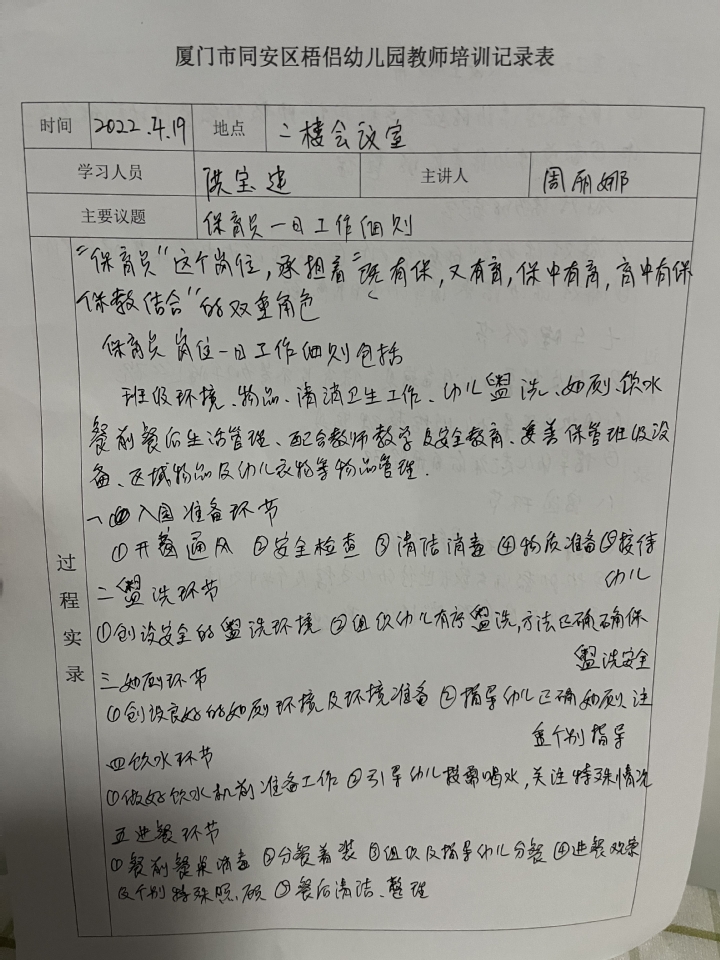 厦门市同安区梧侣幼儿园教师培训记录表
时间 2022.4.19 地点 二楼会议室
学习人员 洪宝连 主讲人 周丽娜
主要议题 保育员一日工作细则
过程实录
"保育员"这个岗位,承担着"既有保,又有育,保中有育,育中有保
保教结合"的双重角色
保育员岗位一日工作细则包括
班级环境、物品、清消卫生工作、幼儿盥洗、如厕、饮水
餐前餐后生活管理、配合教师教学及安全教育、妥善保管班级设
备、区域物品及幼儿衣物等物品管理.
一 入园准备环节
①开窗通风 ②安全检查 ③清洁消毒 ④物质准备⑤接待
幼儿
二盥洗环节
①创设安全的盥洗环境 ②组织幼儿有序盥洗,方法正确,确保
盥洗安全
三如厕环节
①创设良好的如厕环境及环境准备 ②指导幼儿正确如厕,注
重个别指导
四饮水环节
①做好饮水机前准备工作 ②引导幼儿按需喝水,关注特殊情况
五进餐环节
①餐前餐桌消毒 ②分餐着装 ③组织及指导幼儿分餐 ④进餐观察
及个别特殊照顾 ⑤餐后清洁、整理